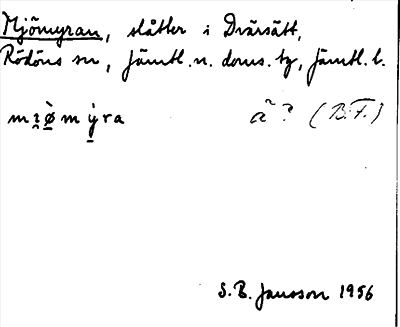 Mjömyran, slåtter i Dvärsätt,
Rödöns sn, Jämtl. n. doms. tg, Jämtl. l.
mɪ̯ø̀mỳra ã ? (B.F.)
S. B. Jansson 1956